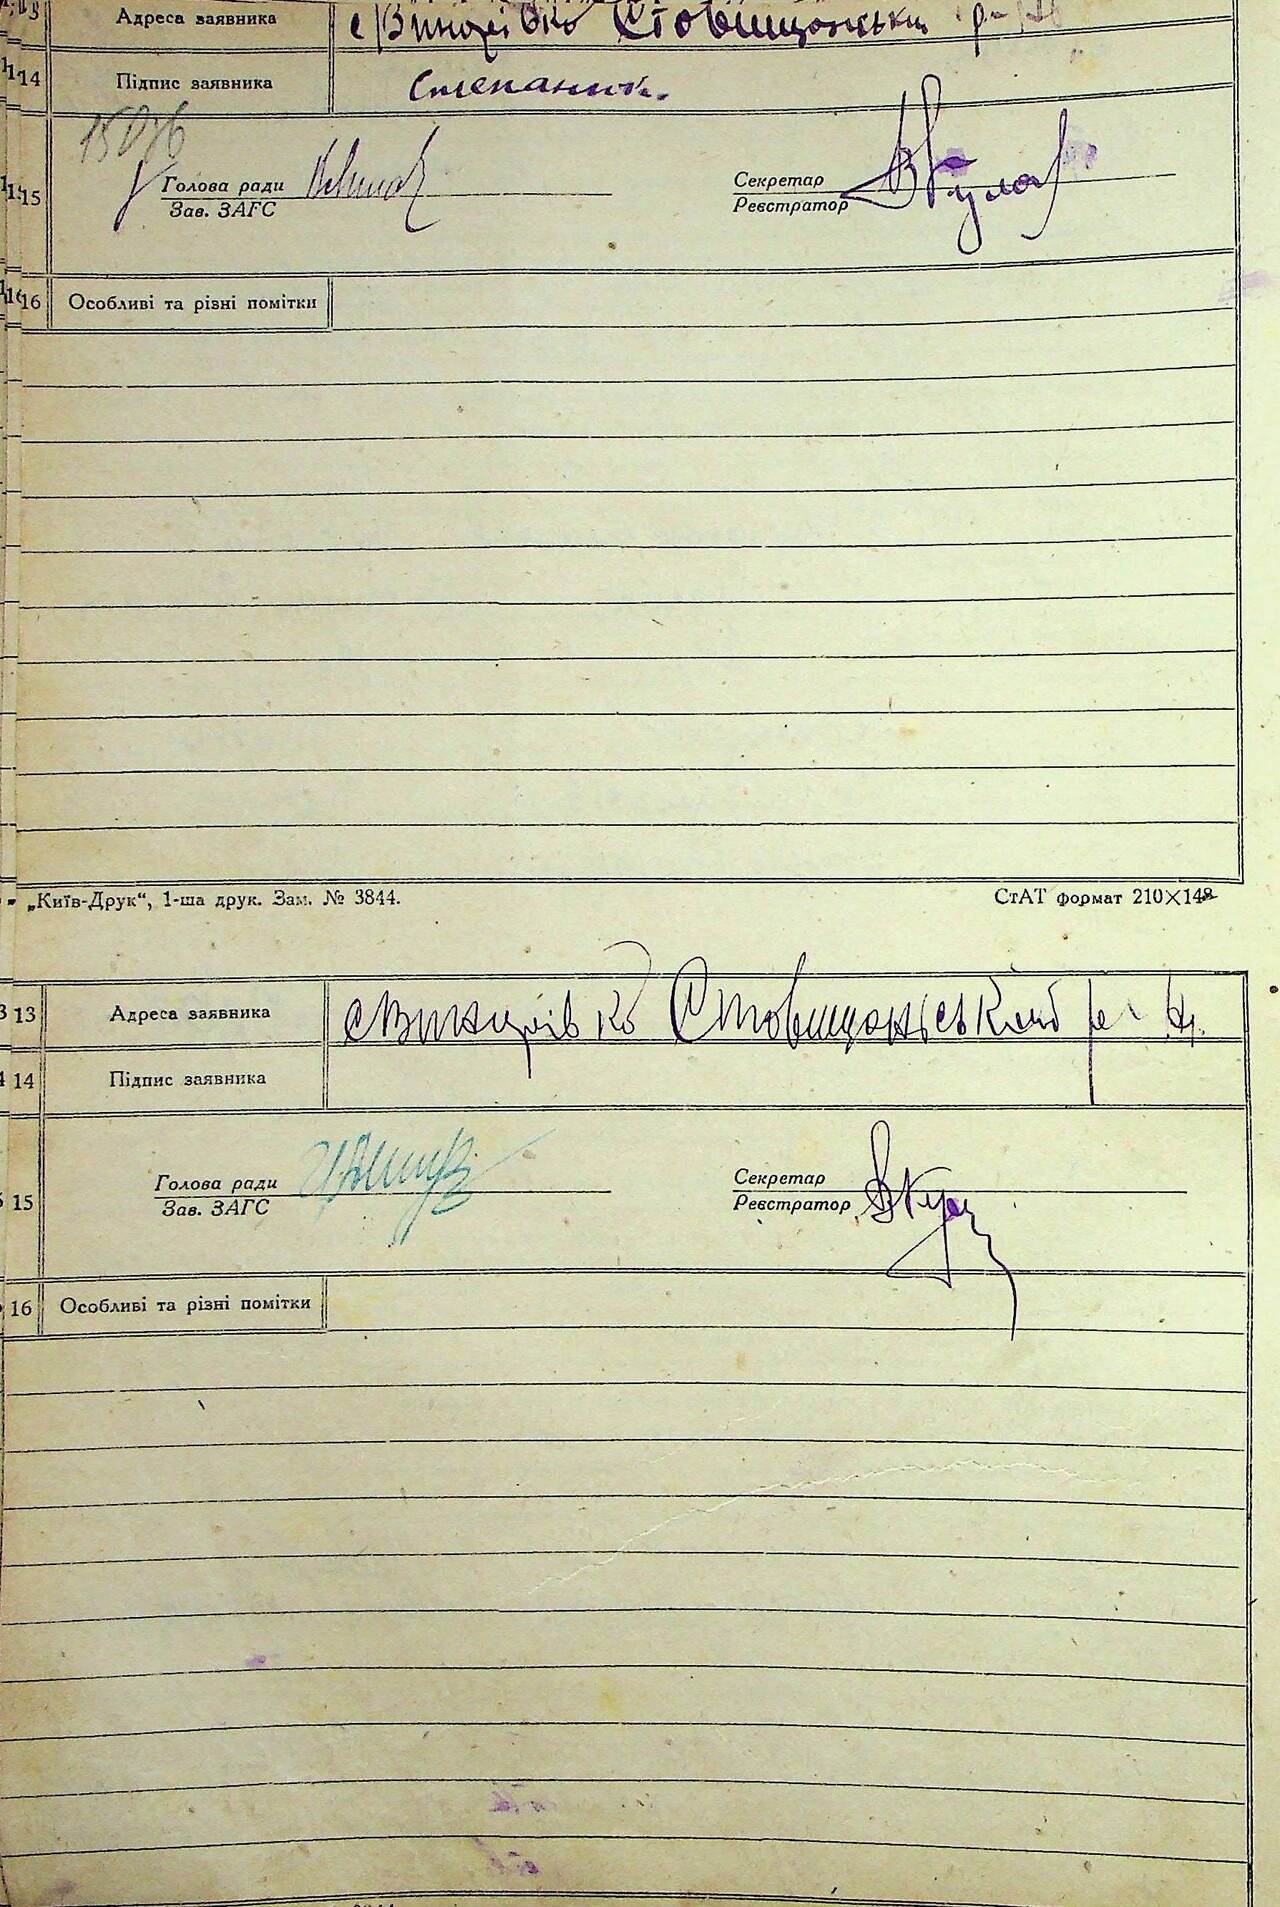 13 Адреса заявника с Винарівка Ставищанськ р-н
14 Підпис заявника Степаник
15 Голова ради Секретар
Зав. ЗАГС Реєстратор
16 Особливі та різні помітки
„Київ-Друк“, 1-ша друк. Зам. № 3844. СтАТ формат 210×148
13 Адреса заявника с Винарівка Ставищанський р-н.
14 Підпис заявника
15 Голова ради Секретар
Зав. ЗАГС Реєстратор
16 Особливі та різні помітки